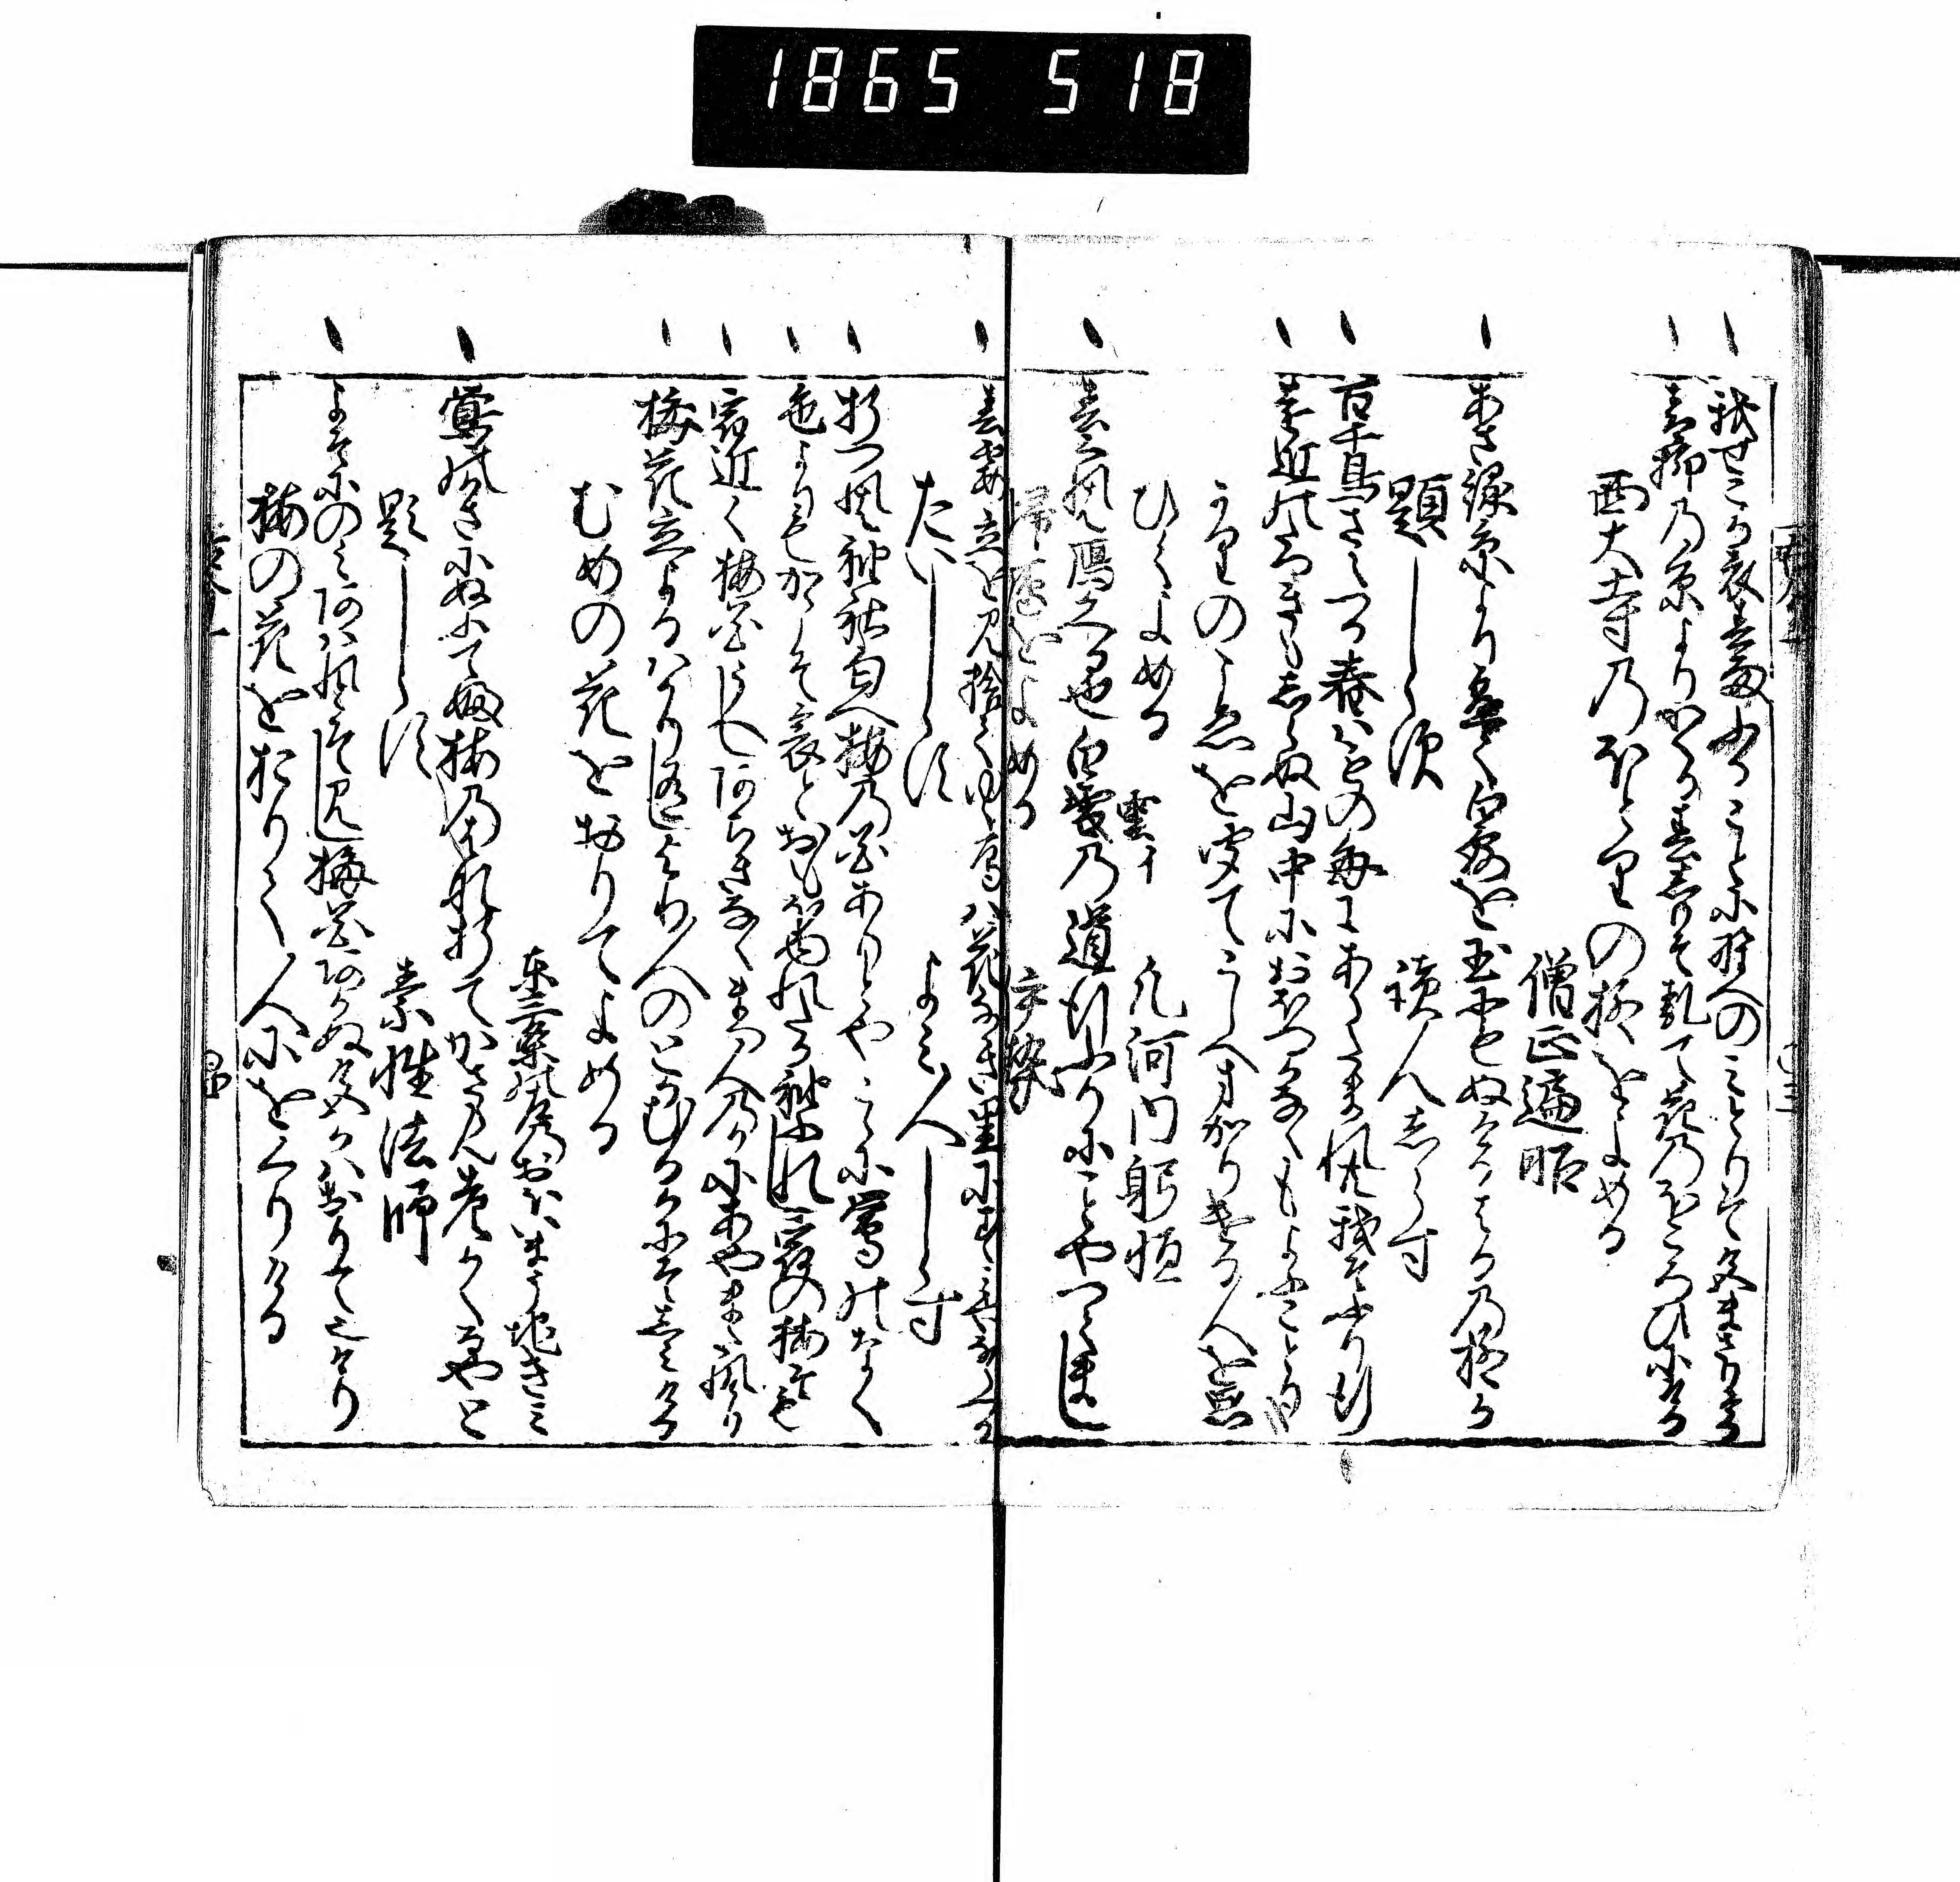 1865 518
我せこか衣春雨ふることに野へのみとりそ色まさりける
青柳乃糸よりかくる春しもそ乱て花乃ほころひにける
西大寺乃ほとりの柳をよめる
僧正遍昭
あさ緑糸よりかけて白露を玉にもぬけるはるの柳か
題しらす 読人しらす
百千鳥さへつる春は物ことにあらたまれとも我そふり行
遠近のたつきもしらぬ山中におほつかなくもよふこ鳥哉
かりのこゑを聞てこしへまかりける人を思
ひてよめる 凡河内躬恒
春くれは鴈かへる也白雲乃道行ふりにことやつてまし
帰鴈をよめる 伊勢
春霞立を見捨てゆく鴈は花なき里にすみやならへる
たいしらす よみ人しらす
折つれは袖社匂へ梅乃花ありとやこゝに鶯のなく
色よりも香こそ哀とおもほゆれたか袖ふれし宿の梅そも
宿近く梅花うへしあちきなくまつ人のかにあやまたれけり
梅花立よるはかりありしより人のとかむるかにそしみける
むめの花をおりてよめる
東三条左のおほいまうちきみ
鶯の笠にぬふてふ梅の花折てかさゝん老かくるやと
題しらす 素性法師
よそにのみあはれとそ見し梅花あかぬ色かは折てなりけり
梅の花をおりて人にをくりける